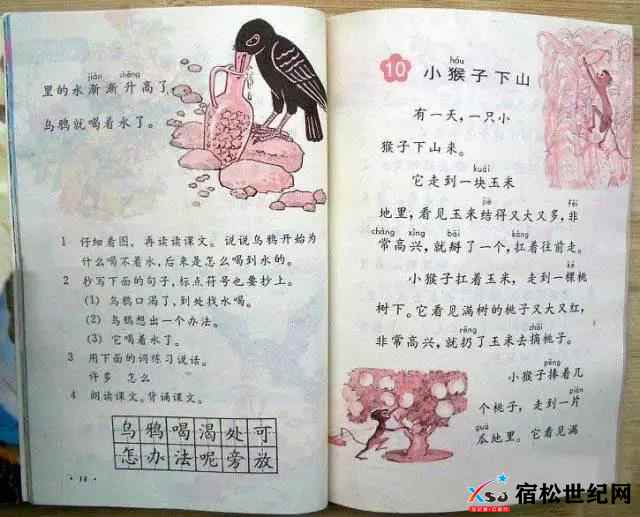 jiàn shēng
里的水渐渐升高了,
乌鸦就喝着水了。
1 仔细看图,再读读课文。说说乌鸦开始为
什么喝不着水,后来是怎么喝到水的。
2 抄写下面的句子,标点符号也要抄上。
(1) 乌鸦口渴了,到处找水喝。
(2) 乌鸦想出一个办法。
(3) 它喝着水了。
3 用下面的词练习说话。
许多 怎么
4 朗读课文。背诵课文。
乌鸦喝渴处可
怎办法呢旁放
hóu
10 小猴子下山
有一天,一只小
猴子下山来。
kuài
它走到一块玉米
jiē fēi
地里,看见玉米结得又大又多,非
cháng xìng bāi káng
常高兴,就掰了一个,扛着往前走。
kē
小猴子扛着玉米,走到一棵桃
树下。它看见满树的桃子又大又红,
rēng zhāi
非常高兴,就扔了玉米去摘桃子。
pěng
小猴子捧着几
piàn
个桃子,走到一片
guā
瓜地里。它看见满
宿松世纪网